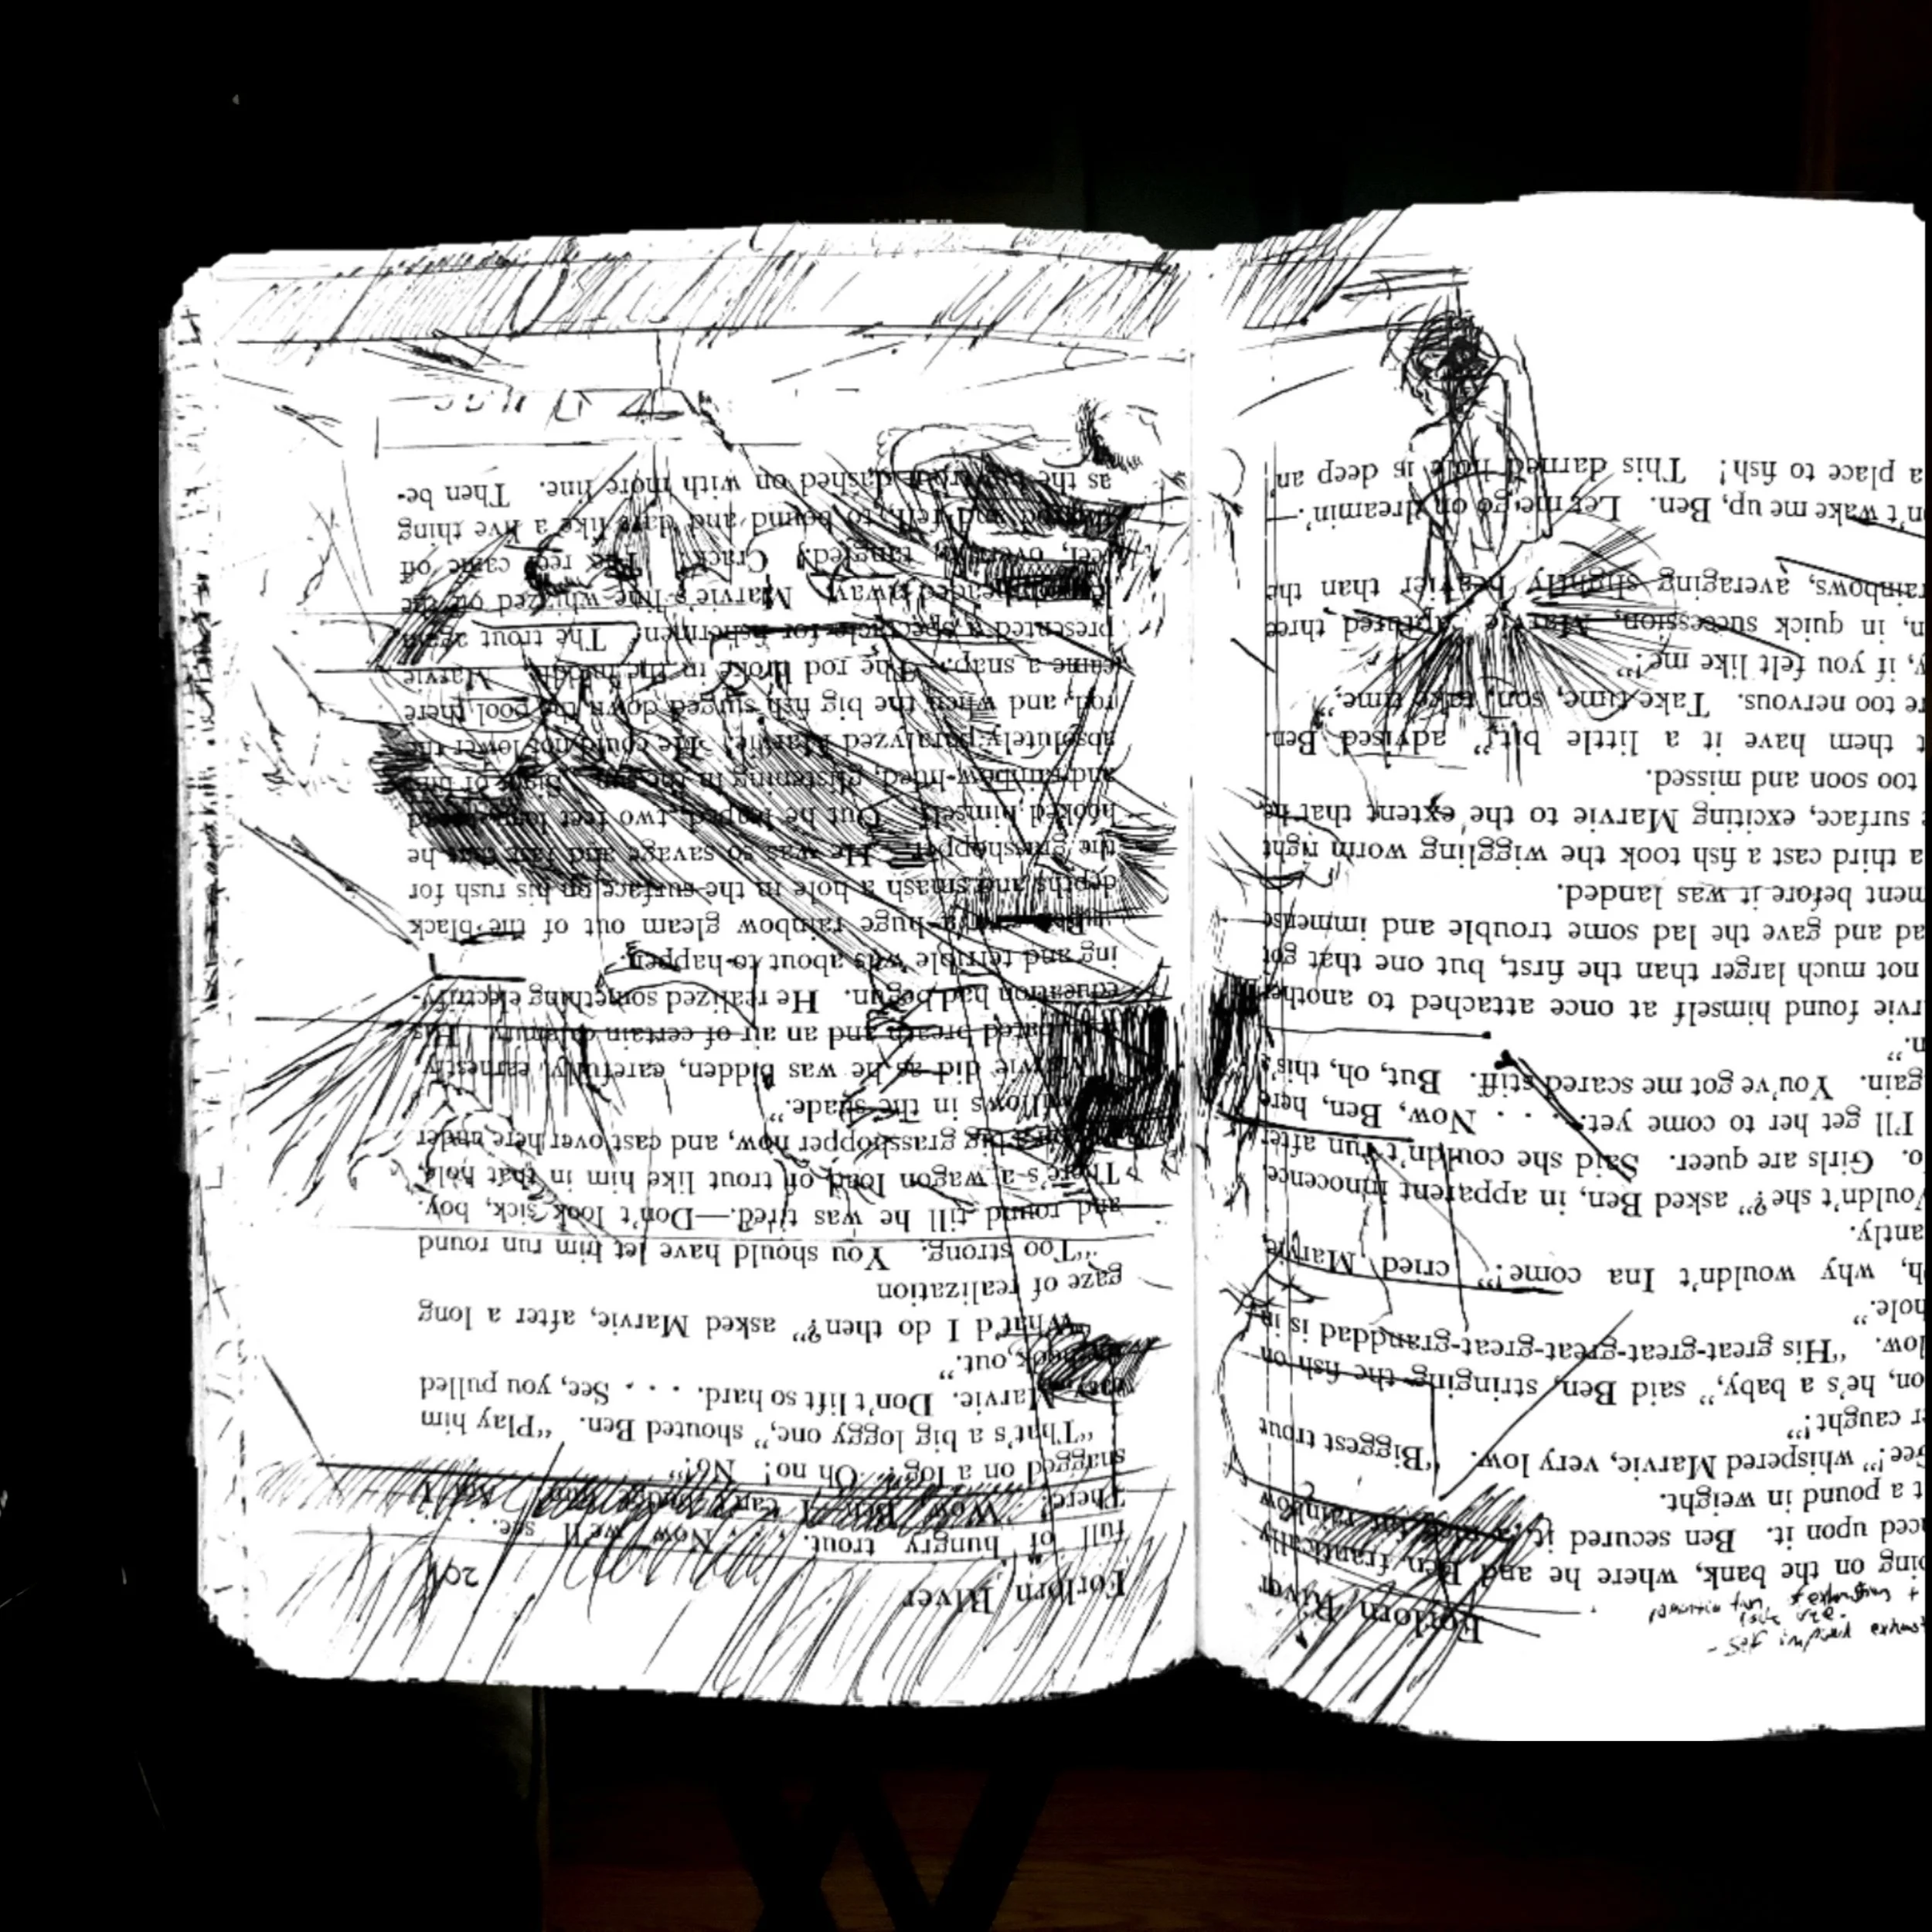 Forlorn River
ping on the bank, where he and Ben frantically
ced upon it. Ben secured it, rainbow
t a pound in weight.
ee!” whispered Marvie, very low. “Biggest trout
er caught!”
on, he's a baby,” said Ben, stringing the fish on
low. “His great-great-great-great-granddad is in
hole.”
h, why wouldn't Ina come!” cried Marvie,
antly.
ouldn't she?” asked Ben, in apparent innocence.
o. Girls are queer. Said she couldn't run after
I'll get her to come yet. . . . Now, Ben, here
gain. You've got me scared stiff. But, oh, this
n.”
rvie found himself at once attached to another
not much larger than the first, but one that got
ad and gave the lad some trouble and immense
ment before it was landed.
a third cast a fish took the wiggling worm right
e surface, exciting Marvie to the extent that he
too soon and missed.
t them have it a little bit,” advised Ben.
re too nervous. Take time, son, take time.”
y, if you felt like me!”
n, in quick succession, Marvie captured three
rainbows, averaging slightly heavier than the
n't wake me up, Ben. Let me go on dreamin'.—
a place to fish! This darned hole is deep an'
Forlorn River 201
full of hungry trout. . . . Now we'll see. . . .
There! Wow! Ben, I can't
snagged on a log? Oh no! No!”
“That's a big loggy one,” shouted Ben. “Play him
Marvie. Don't lift so hard. . . . See, you pulled
hook out.”
“What'd I do then?” asked Marvie, after a long
gaze of realization
“Too strong. You should have let him run round
and round till he was tired.—Don't look sick, boy.
There's a wagon load of trout like him in that hole.
big grasshopper now, and cast over here under
willows in the shade.”
Marvie did as he was bidden, carefully, earnestly
bated breath and an air of certain calamity. His
education had begun. He realized something electrify-
ing and terrible was about to happen.
Ben saw a huge rainbow gleam out of the black
depths and smash a hole in the surface on his rush for
the grasshopper. He was so savage and fast that he
hooked himself. Out he leaped, two feet long,
and rainbow-hued, glistening in the sun. Sight of him
absolutely paralyzed Marvie. He could not lower the
rod, and when the big fish surged down the pool there
came a snap. The rod broke in the middle. Marvie
presented a spectacle for fishermen. The trout again
headed away. Marvie's line whizzed off the
reel, overran, tangled. Crack! The reel came off
and fell, to bound and dart like a live thing
as the big trout dashed on with more line. Then be-